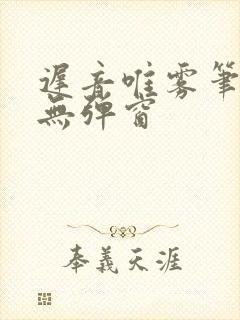 遲音唯雾筆
無彈窗
奉義天涯